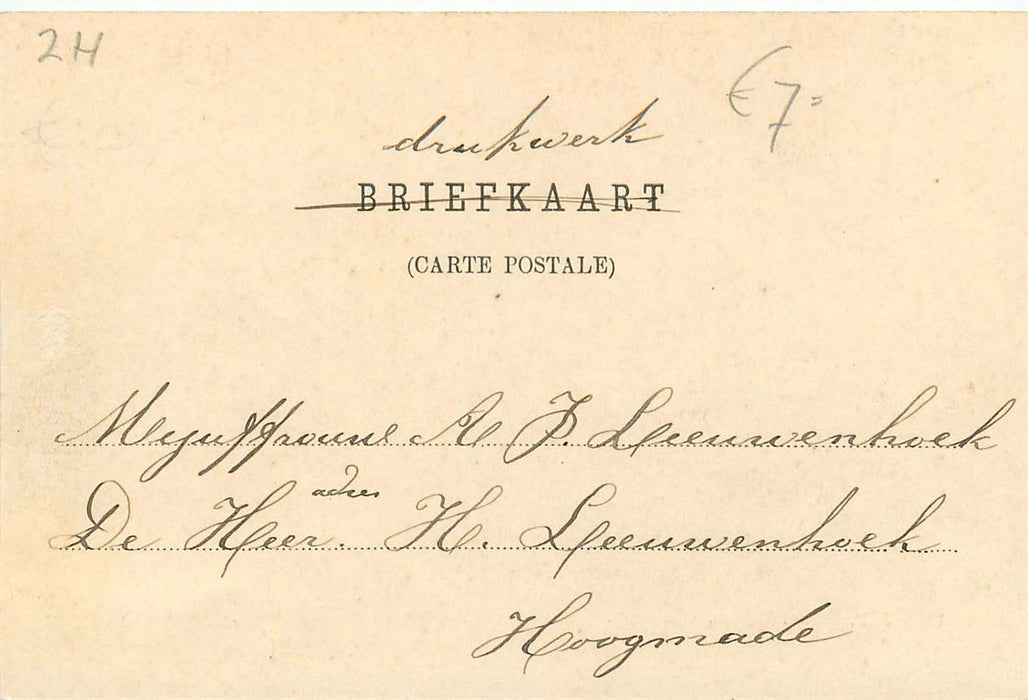 2H
€ 7=
drukwerk
BRIEFKAART
(CARTE POSTALE)
Mejuffrouw A J. Leeuwenhoek
adres
De Heer. H. Leeuwenhoek
Hoogmade